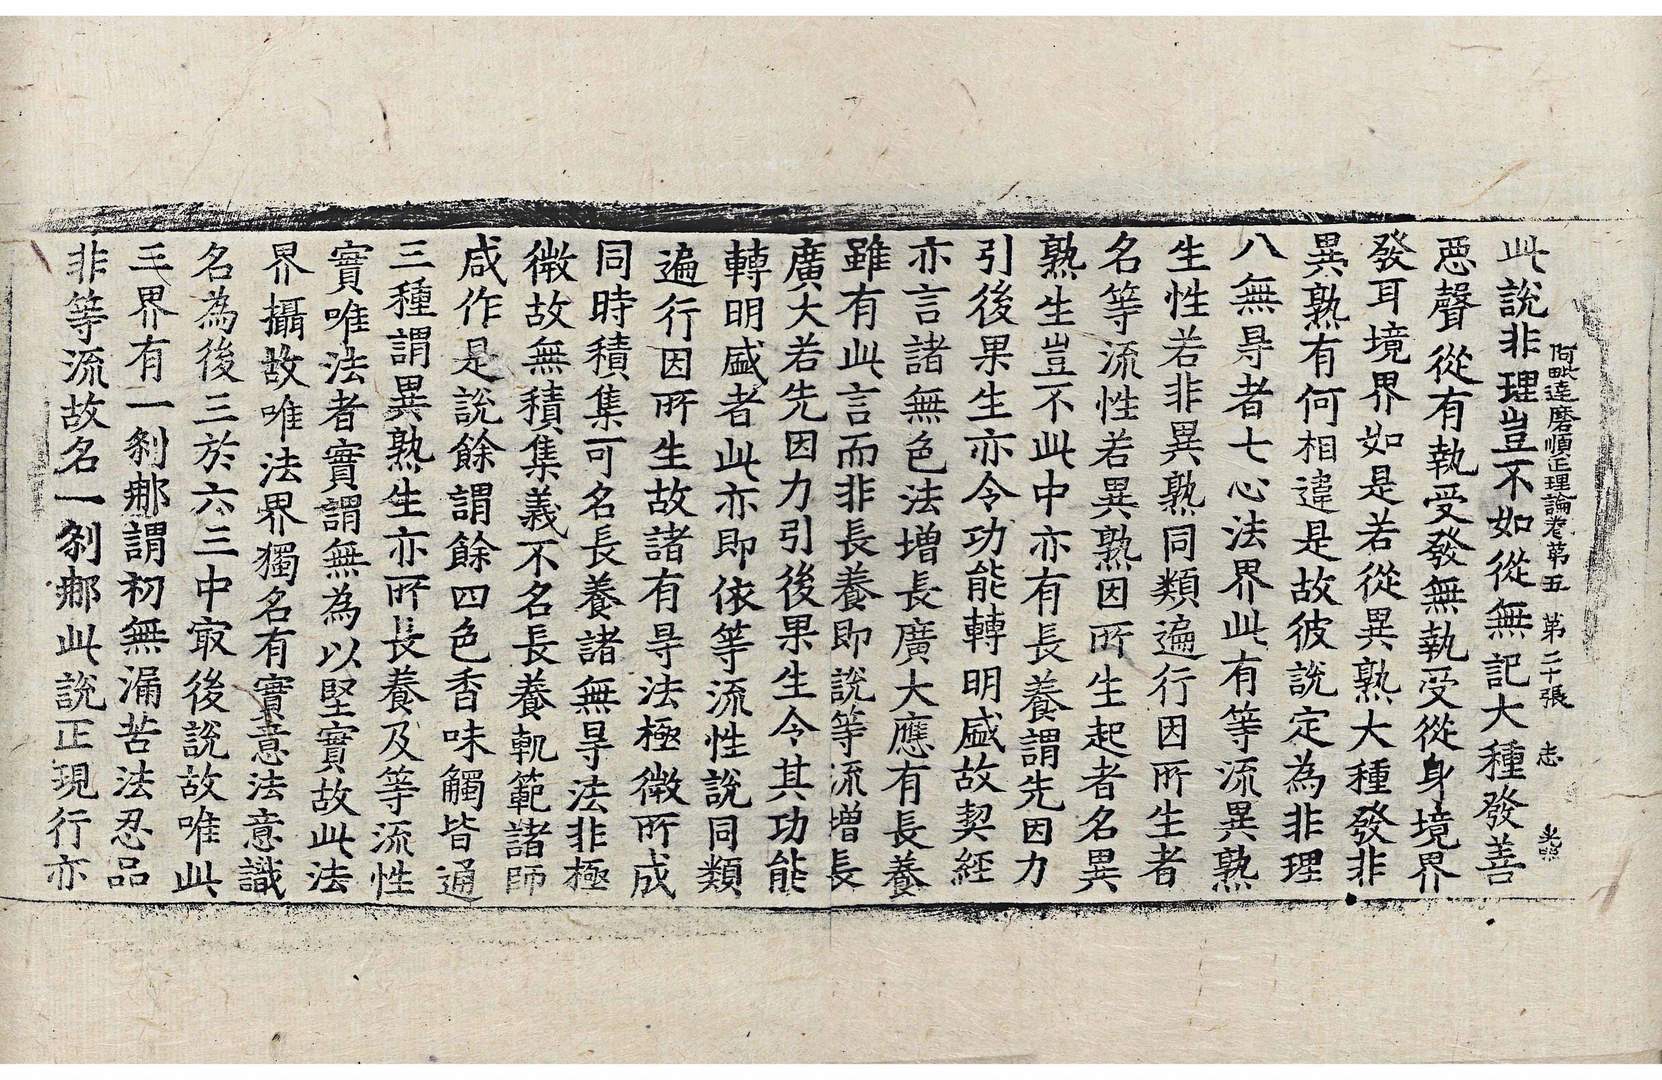 阿毗達磨順正理論卷第五 第二十張 志
此說非理豈不如從無記大種發善
惡聲從有執受發無執受從身境界
發耳境界如是若從異熟大種發非
異熟有何相違是故彼說定為非理
八無㝵者七心法界此有等流異熟
生性若非異熟同類遍行因所生者
名等流性若異熟因所生起者名異
熟生豈不此中亦有長養謂先因力
引後果生亦令功能轉明盛故契經
亦言諸無色法增長廣大應有長養
雖有此言而非長養即說等流增長
廣大若先因力引後果生令其功能
轉明盛者此亦即依等流性說同類
遍行因所生故諸有㝵法極微所成
同時積集可名長養諸無㝵法非極
微故無積集義不名長養軌範諸師
咸作是說餘謂餘四色香味觸皆通
三種謂異熟生亦所長養及等流性
實唯法者實謂無為以堅實故此法
界攝故唯法界獨名有實意法意識
名為後三於六三中㝡後說故唯此
三界有一剎那謂初無漏苦法忍品
非等流故名一剎那此說正現行亦